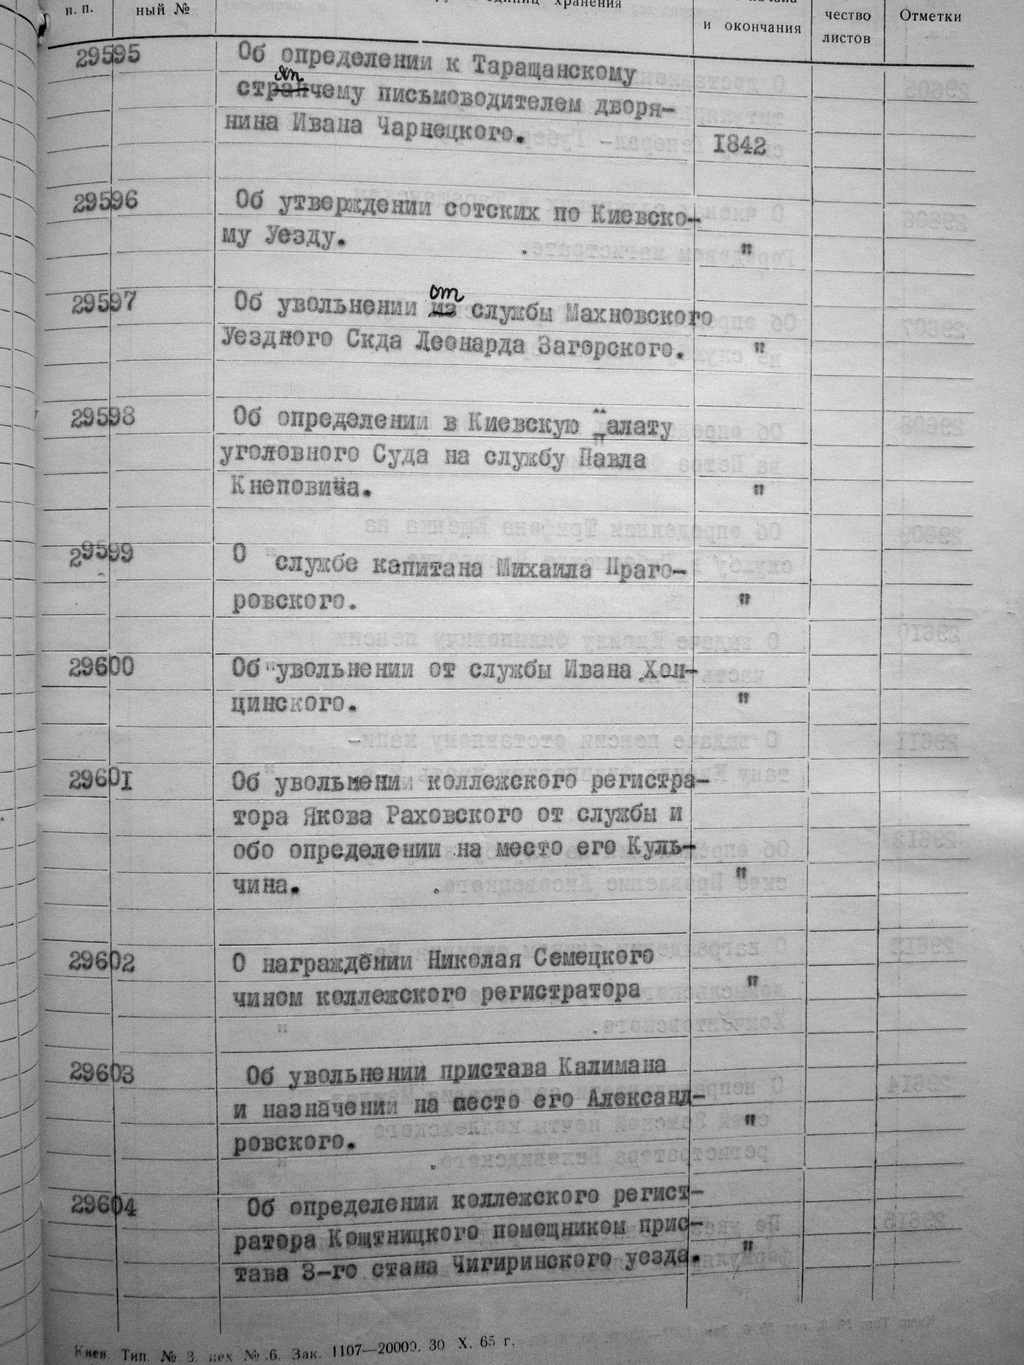 п. п.
ный №
единиц хранения
и окончания
чество
листов
Отметки
29595
Об определении к Таращанскому
стряпчему письмоводителем дворя-
нина Ивана Чарнецкого.
1842
29596
Об утверждении сотских по Киевско-
му Уезду.
"
29597
Об увольнении из от службы Махновского
Уездного Скда Леонарда Загорского.
"
29598
Об определении в Киевскую Палату
уголовного Суда на службу Павла
Кнеповича.
"
29599
О службе капитана Михаила Праго-
ровского.
"
29600
Об увольнении от службы Ивана Хон-
цинского.
"
29601
Об увольнени коллежского регистра-
тора Якова Раховского от службы и
обо определении на место его Куль-
чина.
"
29602
О награждении Николая Семецкого
чином коллежского регистратора
"
29603
Об увольнении пристава Калимана
и назначении на место его Александ-
ровского.
"
29604
Об определении коллежского регист-
ратора Коштницкого помощником прис-
тава 3-го стана Чигиринского уезда.
"
Киев. Тип. № 3. цех № 6. Зак. 1107—20000. 30 X. 65 г.